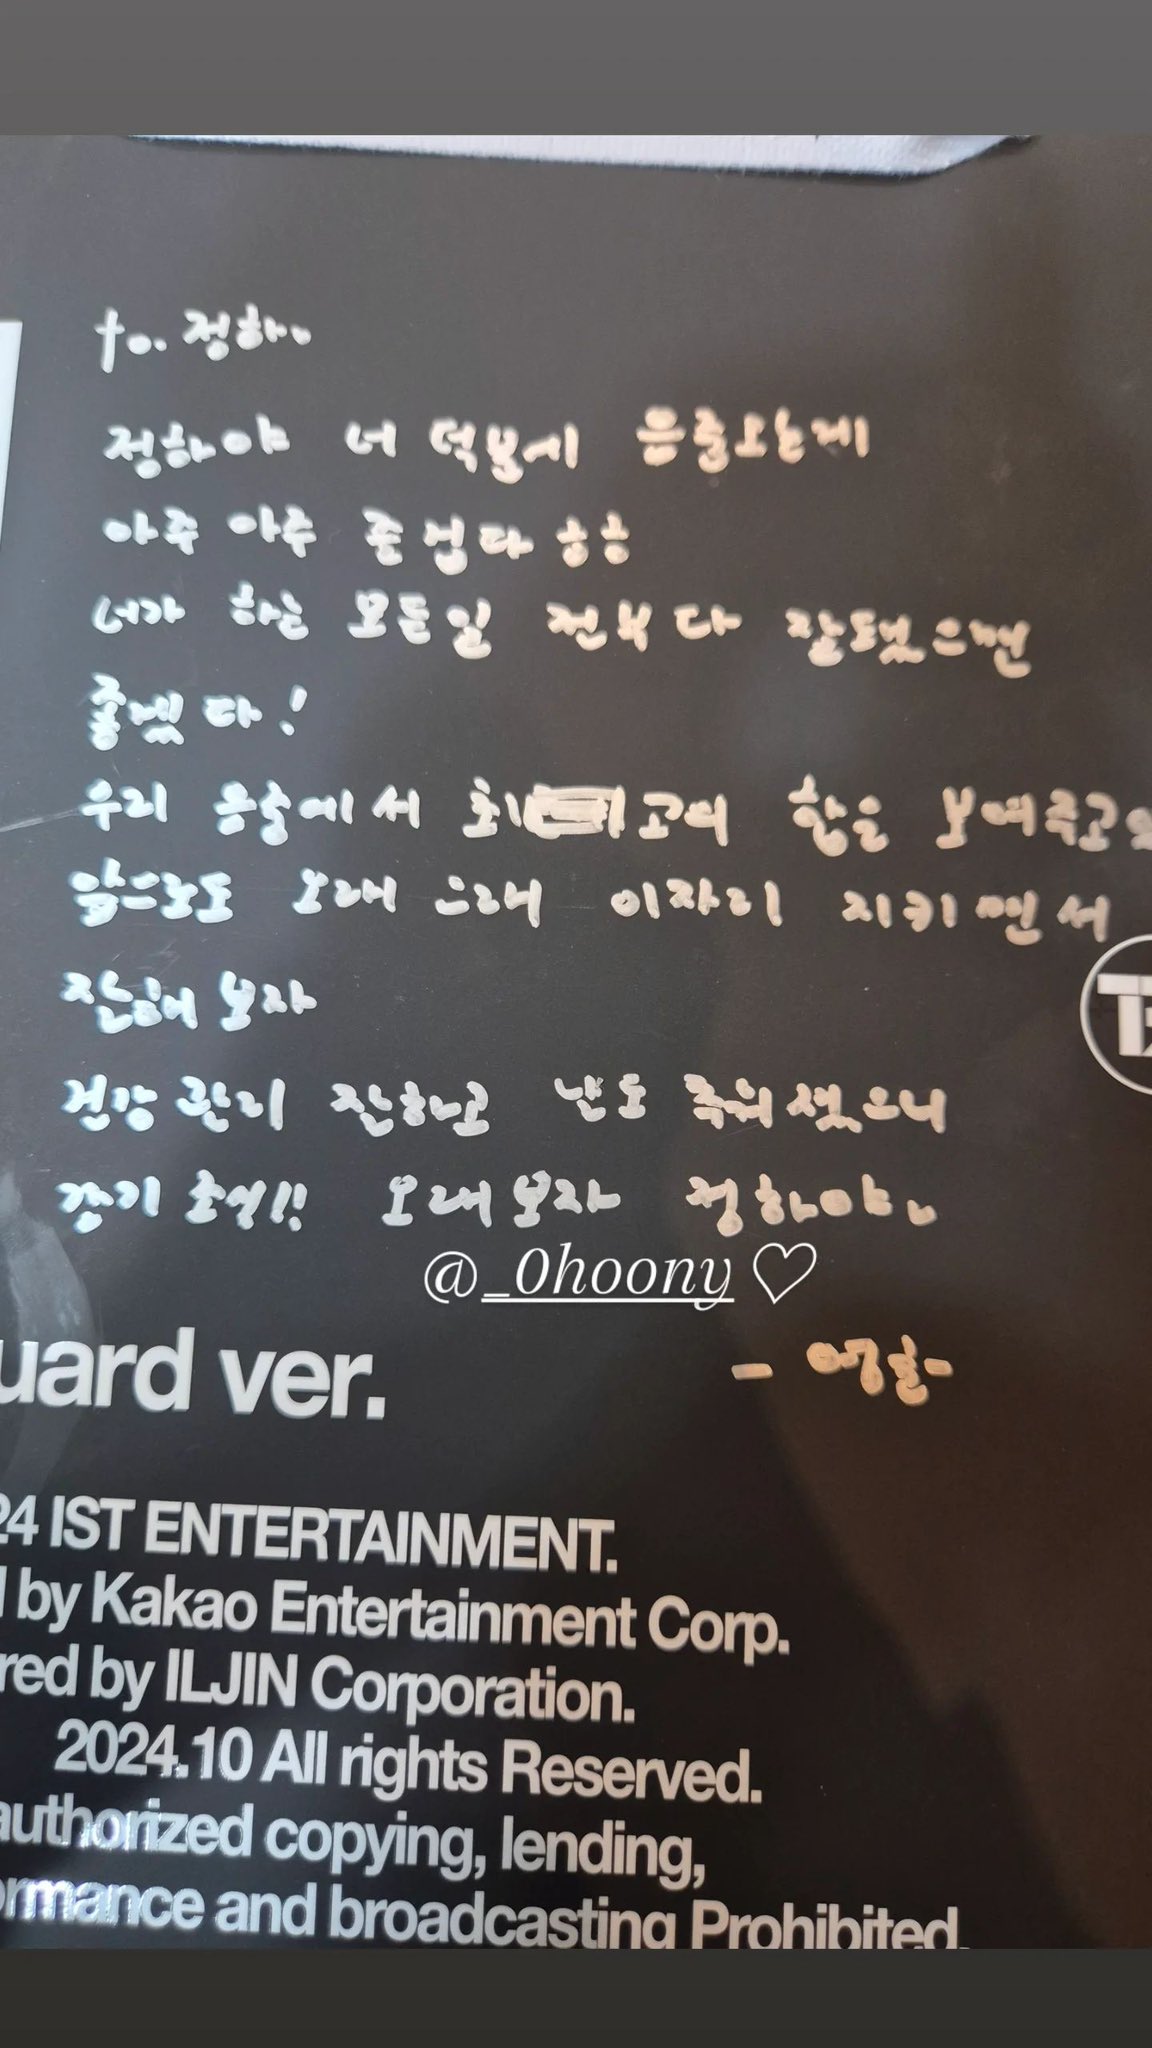 to. 정하.
정하야 너 덕분에 음중오는게
아주 아주 즐겁다 ㅎㅎ
너가 하는 모든일 전부 다 잘됐으면
좋겠다!
우리 음중에서 최 고의 합을 보여주고
앞으로도 오래 오래 이자리 지키면서
잘해보자
건강관리 잘하고 날도 추워졌으니
감기 조심!! 오래보자 정하야.
@_0hoony ♡
- 영훈-
uard ver.
24 IST ENTERTAINMENT.
d by Kakao Entertainment Corp.
red by ILJIN Corporation.
2024.10 All rights Reserved.
authorized copying, lending,
ormance and broadcasting Prohibited.